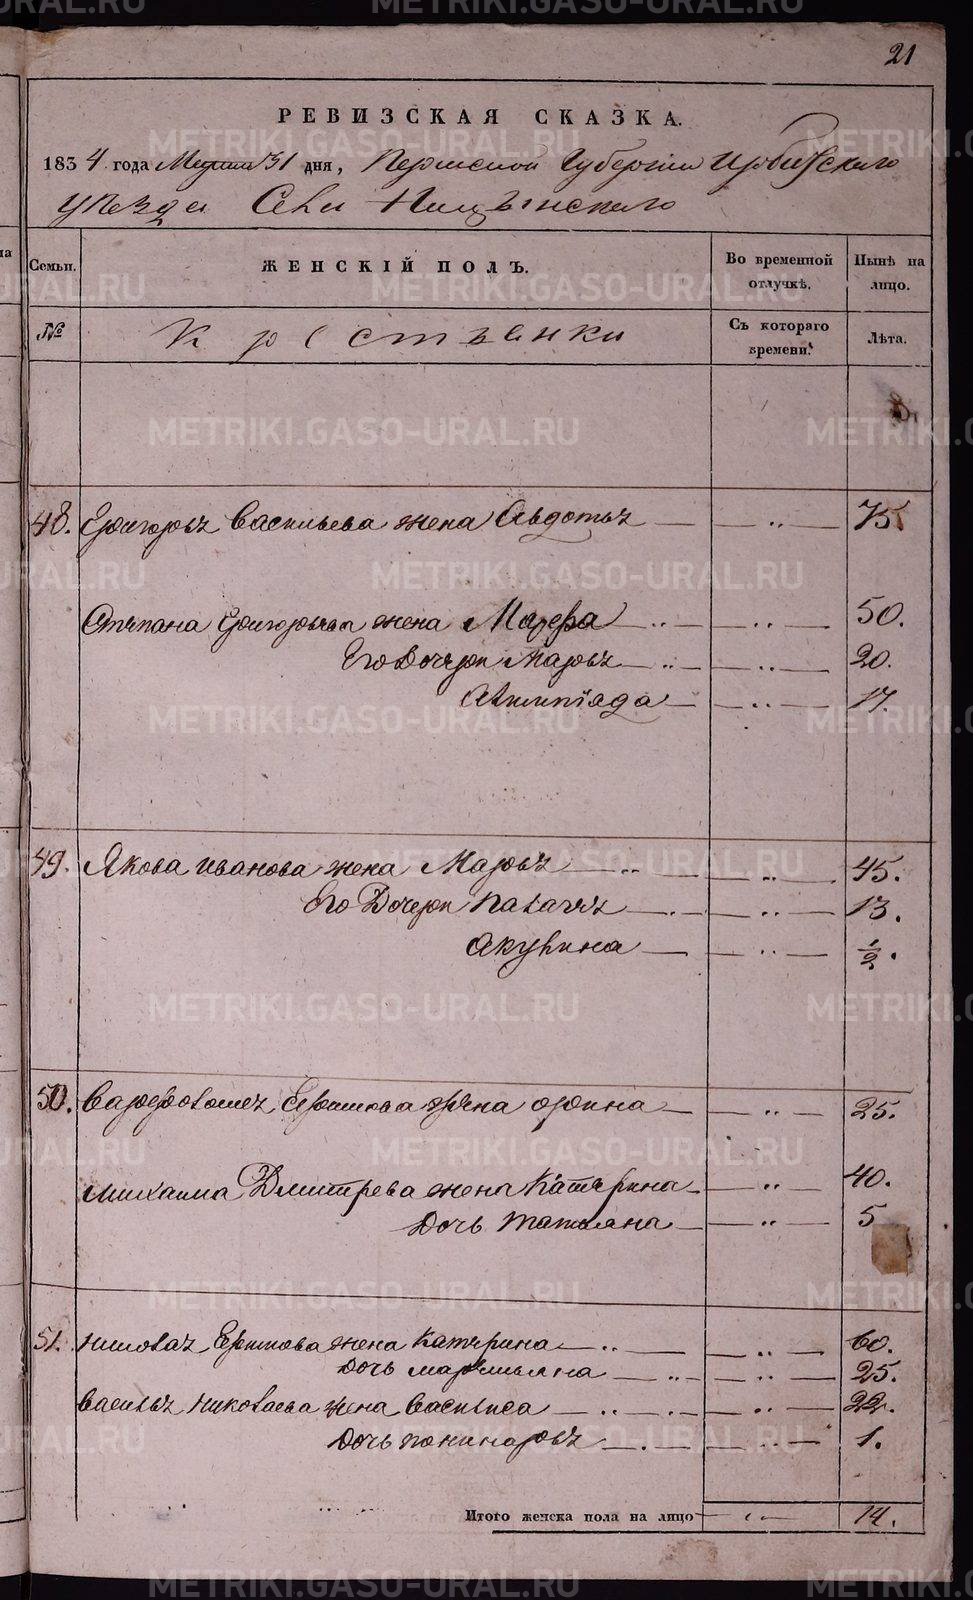 21
РЕВИЗСКАЯ СКАЗКА.
1834 года Марта 31 дня, Пермской Губернии Ирбитскаго
уезда Села Ницынскаго
Семьи. ЖЕНСКІЙ ПОЛЪ. Во временной отлучкѣ. Нынѣ на лицо.
№ Крестьянки Съ котораго времени. Лѣта.
48. Григорья Васильева жена Авдотья 75
Степана Григорьева жена Марфа 50.
Его Дочери Марья 20.
Алимпіада 17.
49. Якова Иванова жена Марья 45.
Его Дочери Палагея 13.
Акулина 1/2.
50. Варфоломея Ефимова жена Орина 25.
Михаила Дмитрева жена Катерина 40.
Дочь Татьяна 5
51. Николая Ефимова жена Катерина 60.
Дочь Маремьяна 25.
Василья Николаева жена Василиса 22.
Дочь 1.
Итого женска пола на лицо 14.
METRIKI.GASO-URAL.RU